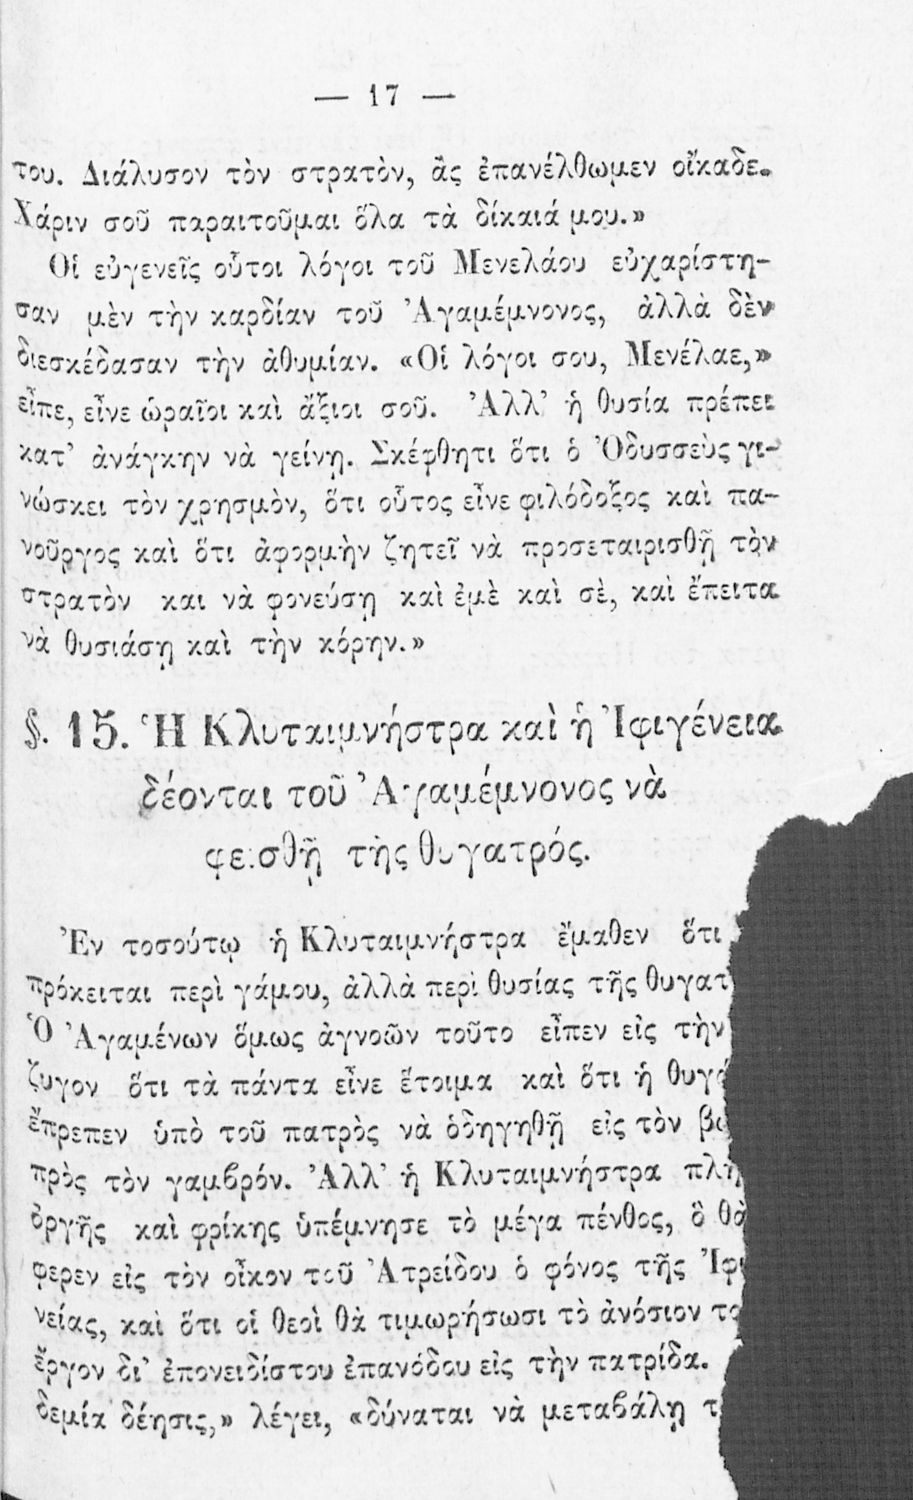 — 17 —
του. Διάλυσον τὸν στρατὸν, ἂς ἐπανέλθωμεν οἴκαδε.
Χάριν σοῦ παραιτοῦμαι ὅλα τὰ δίκαιά μου.»
Οἱ εὐγενεῖς οὗτοι λόγοι τοῦ Μενελάου εὐχαρίστη-
σαν μὲν τὴν καρδίαν τοῦ Ἀγαμέμνονος, ἀλλὰ δὲν
διεσκέδασαν τὴν ἀθυμίαν. «Οἱ λόγοι σου, Μενέλαε,»
εἶπε, εἶνε ὡραῖοι καὶ ἄξιοι σοῦ. Ἀλλ’ ἡ θυσία πρέπει
κατ’ ἀνάγκην νὰ γείνῃ. Σκέφθητι ὅτι ὁ Ὀδυσσεὺς γι-
νώσκει τὸν χρησμὸν, ὅτι οὗτος εἶνε φιλόδοξος καὶ πα-
νοῦργος καὶ ὅτι ἀφορμὴν ζητεῖ νὰ προσεταιρισθῇ τὸν
στρατὸν και νὰ φονεύσῃ καὶ ἐμὲ καὶ σὲ, καὶ ἔπειτα
νὰ θυσιάσῃ καὶ τὴν κόρην.»
§. 15. Ἡ Κλυταιμνήστρα καὶ ἡ Ἰφιγένεια
δέονται τοῦ Ἀγαμέμνονος νὰ
φεισθῇ τῆς θυγατρός.
Ἐν τοσούτῳ ἡ Κλυταιμνήστρα ἔμαθεν ὅτι
πρόκειται περὶ γάμου, ἀλλὰ περὶ θυσίας τῆς θυγατ
Ὁ Ἀγαμένων ὅμως ἀγνοῶν τοῦτο εἶπεν εἰς τὴν
ζυγον ὅτι τὰ πάντα εἶνε ἕτοιμα καὶ ὅτι ἡ θυγά
ἔπρεπεν ὑπὸ τοῦ πατρὸς νὰ ὁδηγηθῇ εἰς τὸν βω
πρὸς τὸν γαμβρόν. Ἀλλ’ ἡ Κλυταιμνήστρα πλή
ὀργῆς καὶ φρίκης ὑπέμνησε τὸ μέγα πένθος, ὃ θὰ
φερεν εἰς τὸν οἶκον τοῦ Ἀτρείδου ὁ φόνος τῆς Ἰφι
νείας, καὶ ὅτι οἱ θεοὶ θὰ τιμωρήσωσι τὸ ἀνόσιον το
ἔργον δι’ ἐπονειδίστου ἐπανόδου εἰς τὴν πατρίδα.
δεμία δέησις,» λέγει, «δύναται νὰ μεταβάλῃ τ